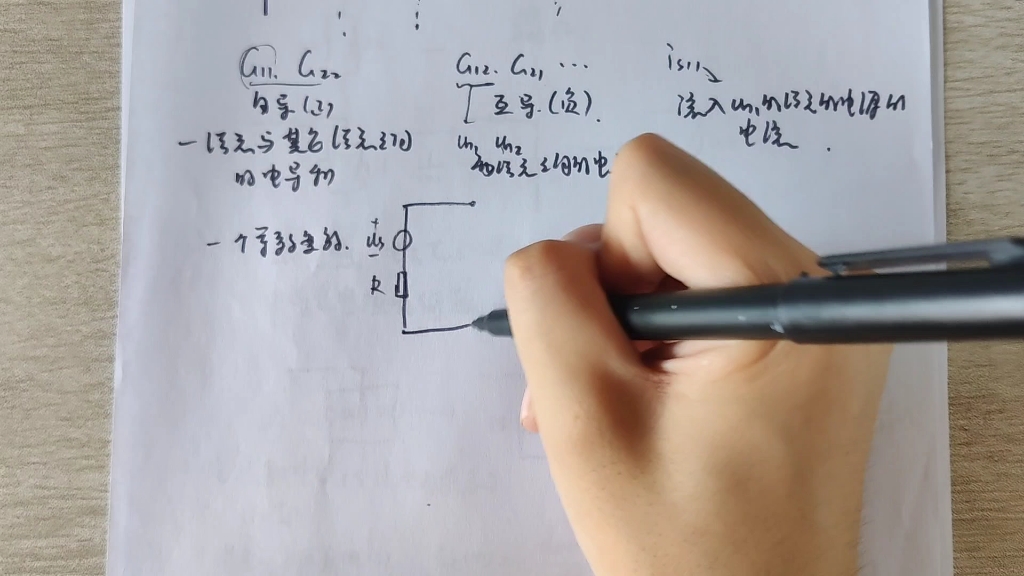 G11. G22
自导(正)
一结点与其它(结点之间)
的电导和
G12. G21 ...
互导.(负).
un1 un2
结点之间的电
is11
流入un1的结点的电源的
电流.
一个等效
+
us
−
R